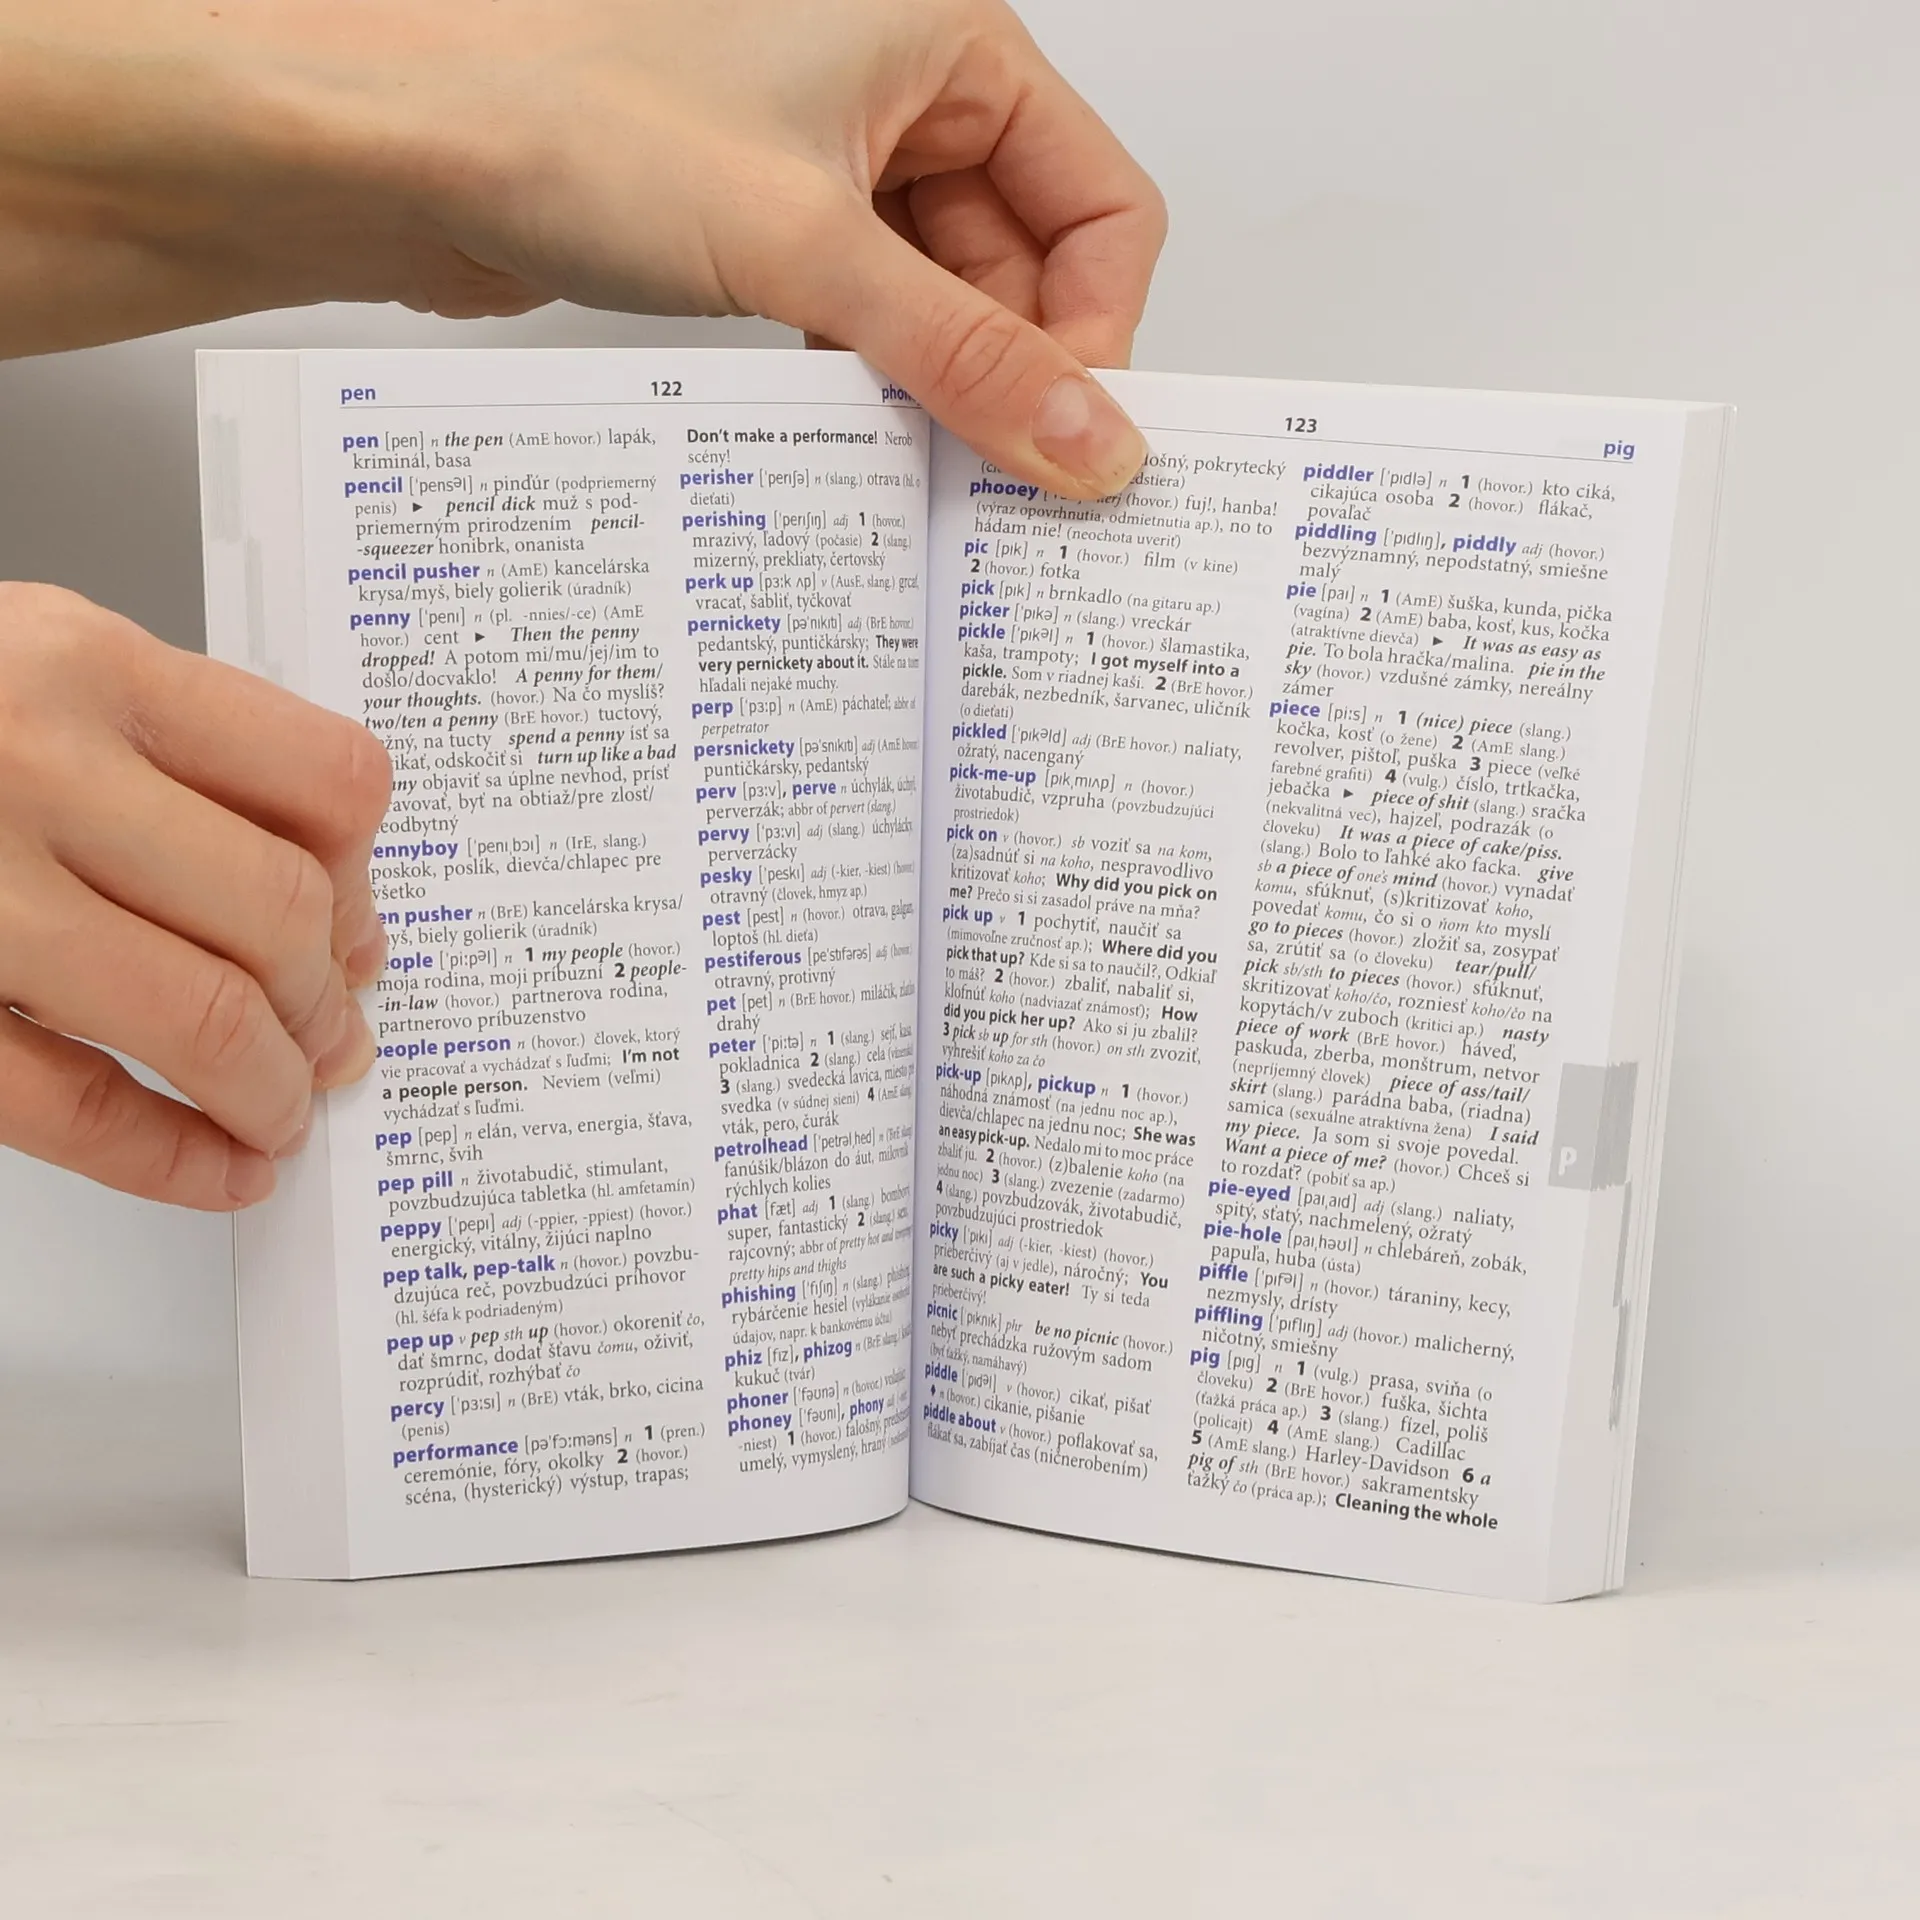 pen 122
pen [pen] n the pen (AmE hovor.) lapák,
kriminál, basa
pencil [ˈpensəl] n pinďúr (podpriemerný
penis) ► pencil dick muž s pod-
priemerným prirodzením pencil-
-squeezer honibrk, onanista
pencil pusher n (AmE) kancelárska
krysa/myš, biely golierik (úradník)
penny [ˈpenı] n (pl. -nnies/-ce) (AmE
hovor.) cent ► Then the penny
dropped! A potom mi/mu/jej/im to
došlo/docvaklo! A penny for them/
your thoughts. (hovor.) Na čo myslíš?
two/ten a penny (BrE hovor.) tuctový,
na tucty spend a penny ísť sa
odskočiť si turn up like a bad
objaviť sa úplne nevhod, prísť
byť na obtiaž/pre zlosť/
[ˈpenıˌbɔı] n (IrE, slang.)
poskok, poslík, dievča/chlapec pre
všetko
pusher n (BrE) kancelárska krysa/
biely golierik (úradník)
[ˈpi:pəl] n 1 my people (hovor.)
moja rodina, moji príbuzní 2 people-
-in-law (hovor.) partnerova rodina,
partnerovo príbuzenstvo
people person n (hovor.) človek, ktorý
vie pracovať a vychádzať s ľuďmi; I'm not
a people person. Neviem (veľmi)
vychádzať s ľuďmi.
pep [pep] n elán, verva, energia, šťava,
šmrnc, švih
pep pill n životabudič, stimulant,
povzbudzujúca tabletka (hl. amfetamín)
peppy [ˈpepı] adj (-ppier, -ppiest) (hovor.)
energický, vitálny, žijúci naplno
pep talk, pep-talk n (hovor.) povzbu-
dzujúca reč, povzbudzúci príhovor
(hl. šéfa k podriadeným)
pep up v pep sth up (hovor.) okoreniť čo,
dať šmrnc, dodať šťavu čomu, oživiť,
rozprúdiť, rozhýbať čo
percy [ˈpɜ:sı] n (BrE) vták, brko, cicina
(penis)
performance [pəˈfɔ:məns] n 1 (pren.)
ceremónie, fóry, okolky 2 (hovor.)
scéna, (hysterický) výstup, trapas;
Don't make a performance! Nerob
scény!
perisher [ˈperıʃə] n (slang.) otrava (hl. o
dieťati)
perishing [ˈperıʃıŋ] adj 1 (hovor.)
mrazivý, ľadový (počasie) 2 (slang.)
mizerný, prekliaty, čertovský
perk up [pɜ:k ʌp] v (AusE, slang.) grcať,
vracať, šabliť, tyčkovať
pernickety [pəˈnıkıtı] adj (BrE hovor.)
pedantský, puntičkársky; They were
very pernickety about it. Stále na tom
hľadali nejaké muchy.
perp [ˈpɜ:p] n (AmE) páchateľ; abbr of
perpetrator
persnickety [pəˈsnıkıtı] adj (AmE hovor.)
puntičkársky, pedantský
perv [pɜ:v], perve n úchylák, úchyl,
perverzák; abbr of pervert (slang.)
pervy [ˈpɜ:vı] adj (slang.) úchylácky,
perverzácky
pesky [ˈpeskı] adj (-kier, -kiest) (hovor.)
otravný (človek, hmyz ap.)
pest [pest] n (hovor.) otrava, galgan,
loptoš (hl. dieťa)
pestiferous [peˈstıfərəs] adj (hovor.)
otravný, protivný
pet [pet] n (BrE hovor.) miláčik, zlatko,
drahý
peter [ˈpi:tə] n 1 (slang.) sejf, kasa,
pokladnica 2 (slang.) cela (väzenská)
3 (slang.) svedecká lavica, miesto pre
svedka (v súdnej sieni) 4 (AmE slang.)
vták, pero, čurák
petrolhead [ˈpetrəlˌhed] n (BrE slang.)
fanúšik/blázon do áut, milovník
rýchlych kolies
phat [fæt] adj 1 (slang.) bombový,
super, fantastický 2 (slang.) sexi,
rajcovný; abbr of pretty hot and tempting,
pretty hips and thighs
phishing [ˈfıʃıŋ] n (slang.) phishing,
rybárčenie hesiel (vylákanie osobných
údajov, napr. k bankovému účtu)
phiz [fız], phizog n (BrE slang.)
kukuč (tvár)
phoner [ˈfəunə] n (hovor.) volajúci
phoney [ˈfəunı], phony adj
-niest) 1 (hovor.) falošný,
umelý, vymyslený, hraný
123 pig
pokrytecký
phooey (hovor.) fuj!, hanba!
(výraz opovrhnutia, odmietnutia ap.), no to
hádam nie! (neochota uveriť)
pic [pık] n 1 (hovor.) film (v kine)
2 (hovor.) fotka
pick [pık] n brnkadlo (na gitaru ap.)
picker [ˈpıkə] n (slang.) vreckár
pickle [ˈpıkəl] n 1 (hovor.) šlamastika,
kaša, trampoty; I got myself into a
pickle. Som v riadnej kaši. 2 (BrE hovor.)
darebák, nezbedník, šarvanec, uličník
(o dieťati)
pickled [ˈpıkəld] adj (BrE hovor.) naliaty,
ožratý, nacenganý
pick-me-up [pıkˌmıʌp] n (hovor.)
životabudič, vzpruha (povzbudzujúci
prostriedok)
pick on v (hovor.) sb voziť sa na kom,
(za)sadnúť si na koho, nespravodlivo
kritizovať koho; Why did you pick on
me? Prečo si si zasadol práve na mňa?
pick up v 1 pochytiť, naučiť sa
(mimovoľne zručnosť ap.); Where did you
pick that up? Kde si sa to naučil?, Odkiaľ
to máš? 2 (hovor.) zbaliť, nabaliť si,
klofnúť koho (nadviazať známosť); How
did you pick her up? Ako si ju zbalil?
3 pick sb up for sth (hovor.) on sth zvoziť,
vyhrešiť koho za čo
pick-up [pıkʌp], pickup n 1 (hovor.)
náhodná známosť (na jednu noc ap.),
dievča/chlapec na jednu noc; She was
an easy pick-up. Nedalo mi to moc práce
zbaliť ju. 2 (hovor.) (z)balenie koho (na
jednu noc) 3 (slang.) zvezenie (zadarmo)
4 (slang.) povzbudzovák, životabudič,
povzbudzujúci prostriedok
picky [ˈpıkı] adj (-kier, -kiest) (hovor.)
prieberčivý (aj v jedle), náročný; You
are such a picky eater! Ty si teda
prieberčivý!
picnic [ˈpıknık] phr be no picnic (hovor.)
nebyť prechádzka ružovým sadom
(byť ťažký, namáhavý)
piddle [ˈpıdəl] v (hovor.) cikať, pišať
♦ n (hovor.) cikanie, pišanie
piddle about v (hovor.) poflakovať sa,
flákať sa, zabíjať čas (ničnerobením)
piddler [ˈpıdlə] n 1 (hovor.) kto ciká,
cikajúca osoba 2 (hovor.) flákač,
povaľač
piddling [ˈpıdlıŋ], piddly adj (hovor.)
bezvýznamný, nepodstatný, smiešne
malý
pie [paı] n 1 (AmE) šuška, kunda, pička
(vagína) 2 (AmE) baba, kosť, kus, kočka
(atraktívne dievča) ► It was as easy as
pie. To bola hračka/malina. pie in the
sky (hovor.) vzdušné zámky, nereálny
zámer
piece [pi:s] n 1 (nice) piece (slang.)
kočka, kosť (o žene) 2 (AmE slang.)
revolver, pištoľ, puška 3 piece (veľké
farebné grafiti) 4 (vulg.) číslo, trtkačka,
jebačka ► piece of shit (slang.) sračka
(nekvalitná vec), hajzeľ, podrazák (o
človeku) It was a piece of cake/piss.
(slang.) Bolo to ľahké ako facka. give
sb a piece of one's mind (hovor.) vynadať
komu, sfúknuť, (s)kritizovať koho,
povedať komu, čo si o ňom kto myslí
go to pieces (hovor.) zložiť sa, zosypať
sa, zrútiť sa (o človeku) tear/pull/
pick sb/sth to pieces (hovor.) sfúknuť,
skritizovať koho/čo, rozniesť koho/čo na
kopytách/v zuboch (kritici ap.) nasty
piece of work (BrE hovor.) háveď,
paskuda, zberba, monštrum, netvor
(nepríjemný človek) piece of ass/tail/
skirt (slang.) parádna baba, (riadna)
samica (sexuálne atraktívna žena) I said
my piece. Ja som si svoje povedal.
Want a piece of me? (hovor.) Chceš si
to rozdať? (pobiť sa ap.)
pie-eyed [paıˌaıd] adj (slang.) naliaty,
spitý, sťatý, nachmelený, ožratý
pie-hole [paıˌhəʊl] n chlebáreň, zobák,
papuľa, huba (ústa)
piffle [ˈpıfəl] n (hovor.) táraniny, kecy,
nezmysly, drísty
piffling [ˈpıflıŋ] adj (hovor.) malicherný,
ničotný, smiešny
pig [pıg] n 1 (vulg.) prasa, sviňa (o
človeku) 2 (BrE hovor.) fuška, šichta
(ťažká práca ap.) 3 (slang.) fízel, poliš
(policajt) 4 (AmE slang.) Cadillac
5 (AmE slang.) Harley-Davidson 6 a
pig of sth (BrE hovor.) sakramentsky
ťažký čo (práca ap.); Cleaning the whole
P